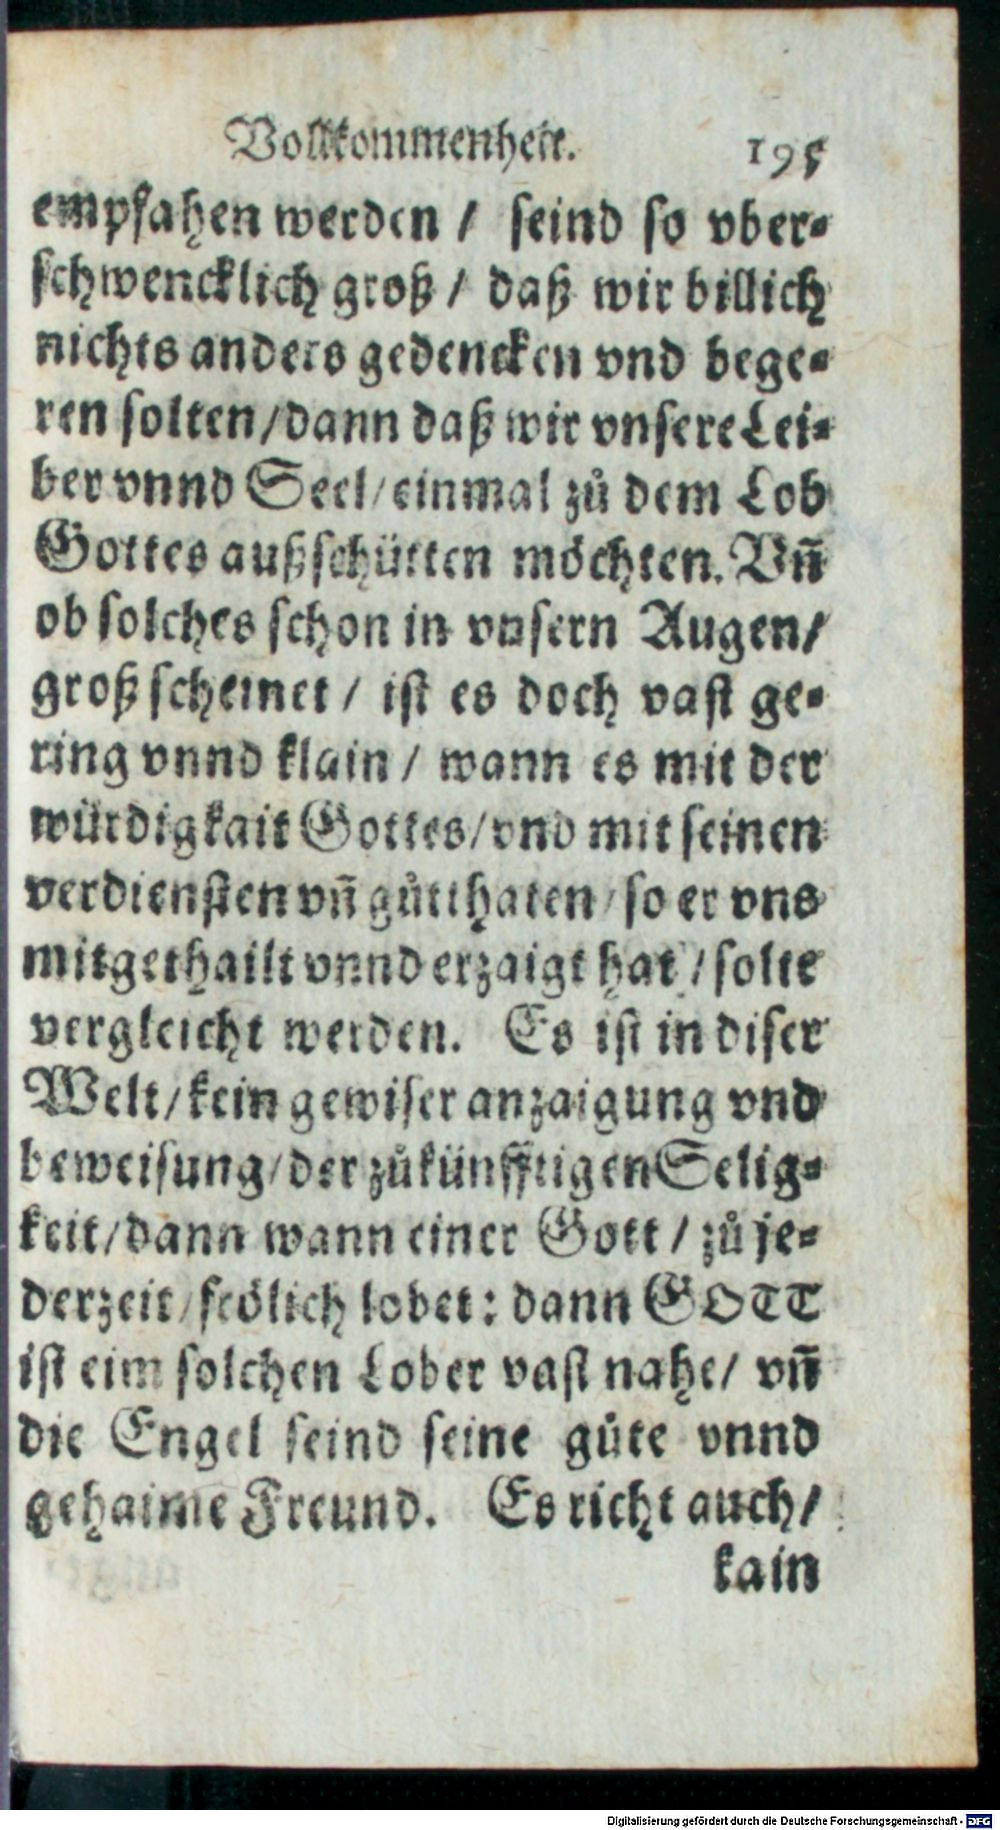 Vollkommenheit. 195
empfahen werden / seind so vber-
schwencklich groß / daß wir billich
nichts anders gedencken vnd bege-
ren solten / dann daß wir vnsere Lei-
ber vnnd Seel / einmal zů dem Lob
Gottes außschütten möchten. Vn̄
ob solches schon in vnsern Augen /
groß scheinet / ist es doch vast ge-
ring vnnd klain / wann es mit der
würdigkait Gottes / vnd mit seinen
verdiensten vn̄ gůtthaten / so er vns
mitgethailt vnnd erzaigt hat / solte
vergleicht werden. Es ist in diser
Welt / kein gewiser anzaigung vnd
beweisung / der zůkünfftigen Selig-
keit / dann wann einer Gott / zů je-
derzeit / frölich lobet : dann GOTT
ist eim solchen Lober vast nahe / vn̄
die Engel seind seine gůte vnnd
gehaime Freund. Es richt auch /
kain
Digitalisierung gefördert durch die Deutsche Forschungsgemeinschaft - DFG